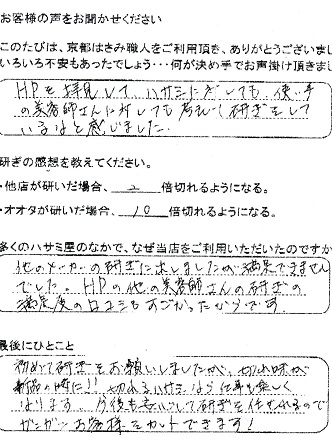 お客様の声をお聞かせください
このたびは、京都はさみ職人をご利用頂き、ありがとうございまし
いろいろ不安もあったでしょう・・・何が決め手でお声掛け頂きまし
HPを拝見して、ハサミに対しても、使い手
の美容師さんに対しても考えて研ぎをして
いるなと感じました。
研ぎの感想を教えてください。
・他店が研いだ場合、 2 倍切れるようになる。
・オオタが研いだ場合、 10 倍切れるようになる。
多くのハサミ屋のなかで、なぜ当店をご利用いただいたのですか
他のメーカーの研ぎに出しましたが満足できません
でした。HPの他の美容師さんの研ぎの
満足度の口コミもすごかったからです。
最後にひとこと
初めて研ぎをお願いしましたが、切れ味が
新品の時に!! 切れるハサミなら仕事も楽しく
なります。今後も安心して研ぎを任せれるので
ガンガンお客様をカットできます!